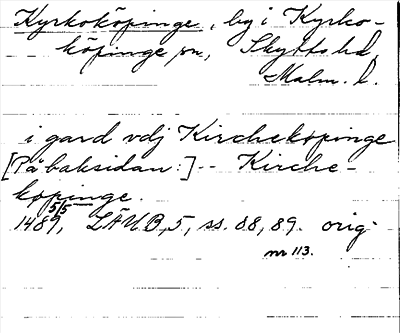 Kyrkoköpinge, by i Kyrko-
köpinge sn, Skytts hd,
Malm. l.
i gard vdj Kircheköpinge
[På baksidan:] -- Kirche-
köpinge.
1489 5/5, LÄUB, 5, ss. 88, 89. orig.
nr 113.